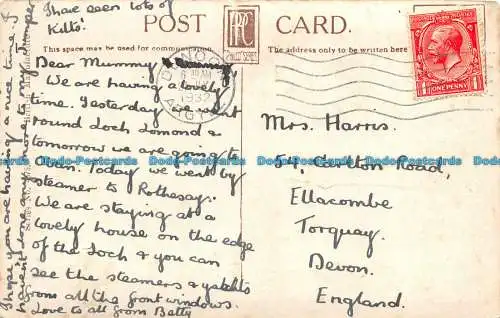 I have seen lots of
'Kilts'.
POST CARD.
This space may be used for communication.
The address only to be written here
Dear Mummy
We are having a lovely
time. Yesterday we went
round Loch Lomond &
tomorrow we are going to
Oban. Today we went by
steamer to Rothesay.
We are staying at a
lovely house on the edge
of the loch & you can
see the steamers & yachts
from all the front windows.
Love to all from Betty
I hope you are having a nice time. I
haven't done any more to my jumper
Mrs. Harris.
54, Carlton Road,
Ellacombe
Torquay.
Devon.
England.
1932
ARGYLL
ONE PENNY
Dodo-Postcards Dodo-Postcards Dodo-Postcards Dodo-Postcards